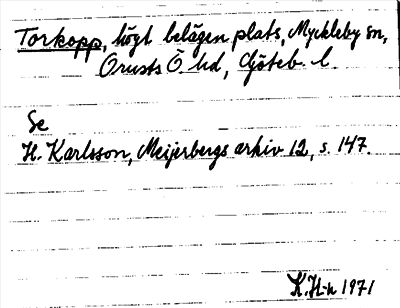 Torkopp, högt belägen plats, Myckleby sn,
Orusts Ö. hd, Göteb. l.
Se
H. Karlsson, Meijerbergs arkiv 12, s. 147.
K. H-n 1971